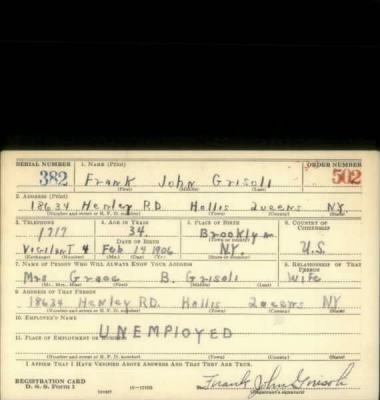 SERIAL NUMBER 1. NAME (Print) ORDER NUMBER
382 Frank John Grisoli 502
(First) (Middle) (Last)
2. ADDRESS (Print)
18634 Henley RD. Hollis Queens NY.
(Number and street or R. F. D. number) (Town) (County) (State)
3. TELEPHONE 4. AGE IN YEARS 5. PLACE OF BIRTH 6. COUNTRY OF CITIZENSHIP
1717 34. Brooklyn
DATE OF BIRTH (Town or county)
Vigilant 4 Feb 14 1906 NY. U.S.
(Exchange) (Number) (Mo.) (Day) (Yr.) (State or country)
7. NAME OF PERSON WHO WILL ALWAYS KNOW YOUR ADDRESS 8. RELATIONSHIP OF THAT PERSON
Mrs Grace B. Grisoli Wife
(Mr., Mrs., Miss) (First) (Middle) (Last)
9. ADDRESS OF THAT PERSON
18634 Henley RD. Hollis Queens NY
(Number and street or R. F. D. number) (Town) (County) (State)
10. EMPLOYER'S NAME
UNEMPLOYED
11. PLACE OF EMPLOYMENT OR BUSINESS
(Number and street or R. F. D. number) (Town) (County) (State)
I AFFIRM THAT I HAVE VERIFIED ABOVE ANSWERS AND THAT THEY ARE TRUE.
REGISTRATION CARD
D. S. S. FORM 1 Frank John Grisoli
(Registrant's signature)